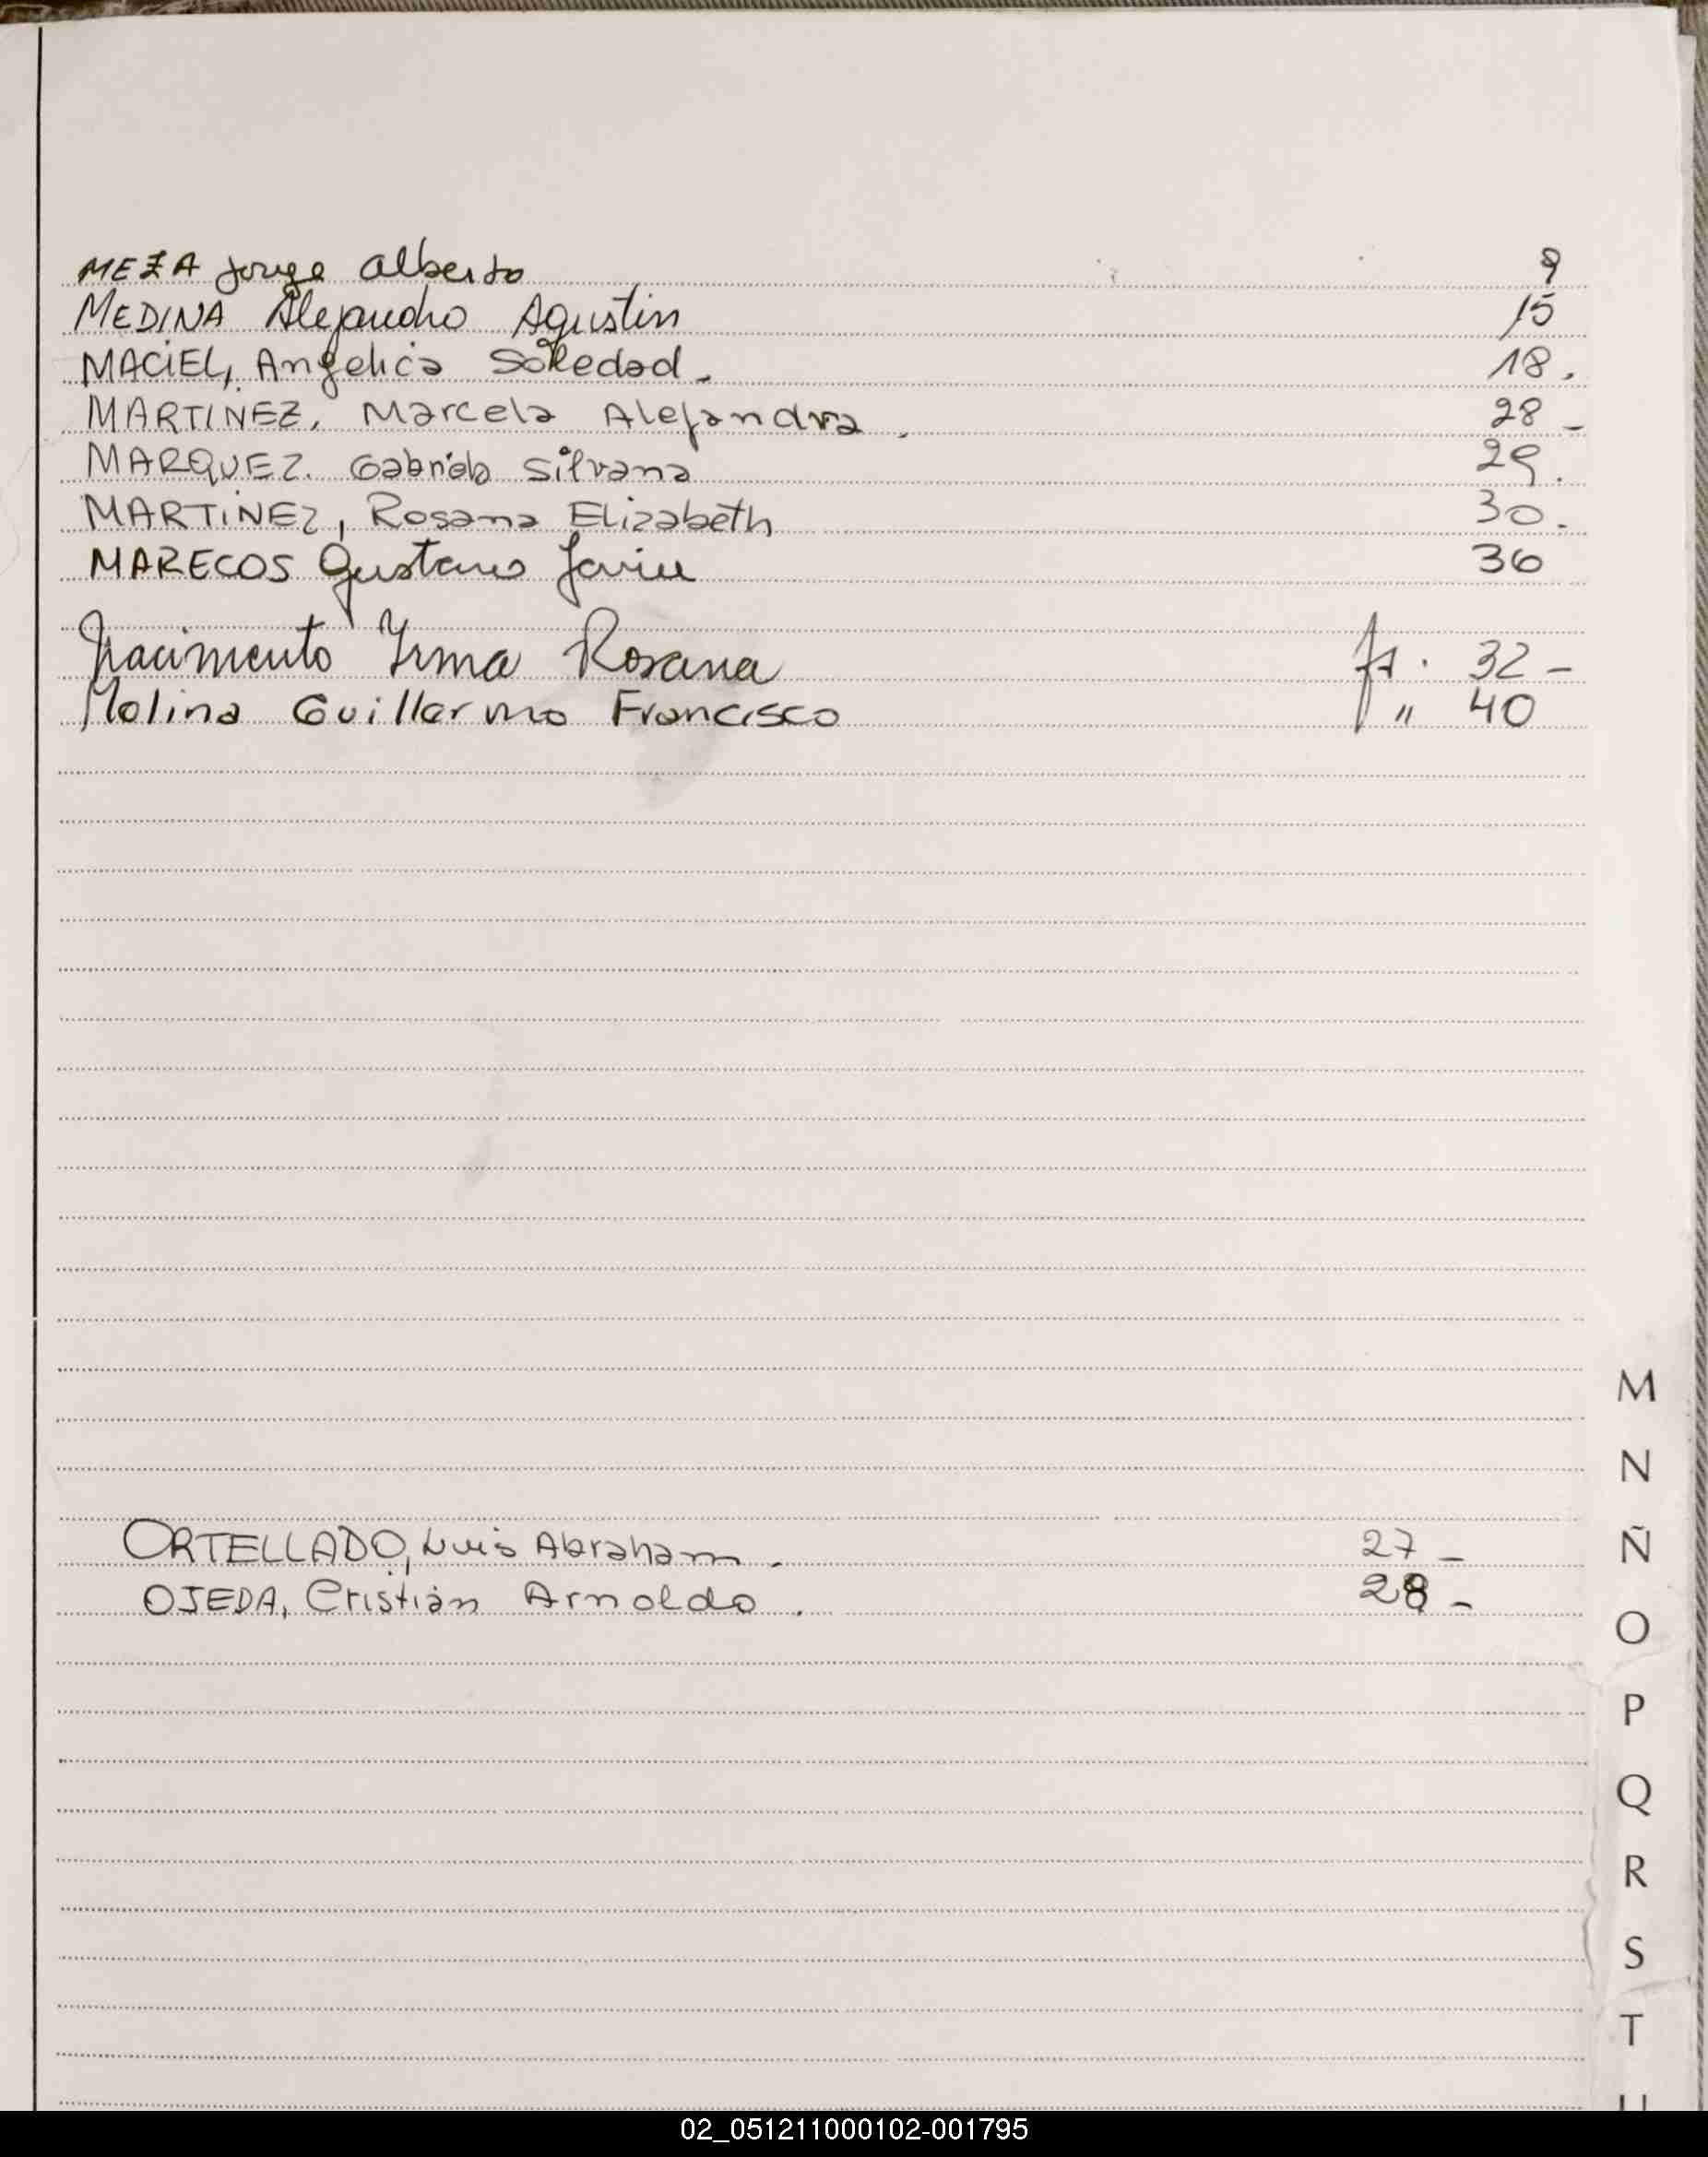 MEZA Jorge Alberto 9
MEDINA Alejandro Agustin 15
MACIEL, Angelica Soledad. 18.
MARTINEZ, Marcela Alejandra. 28-
MARQUEZ. Gabriela Silvana 29.
MARTINEZ, Rosana Elizabeth 30.
MARECOS Gustavo Javier 36
Nacimento Yrma Rosana 32-
Molina Guillermo Francisco " 40
M
N
Ñ
ORTELLADO, Luis Abraham. 27-
OJEDA, Cristian Arnoldo. 28-
O
P
Q
R
S
T
U
02_051211000102-001795